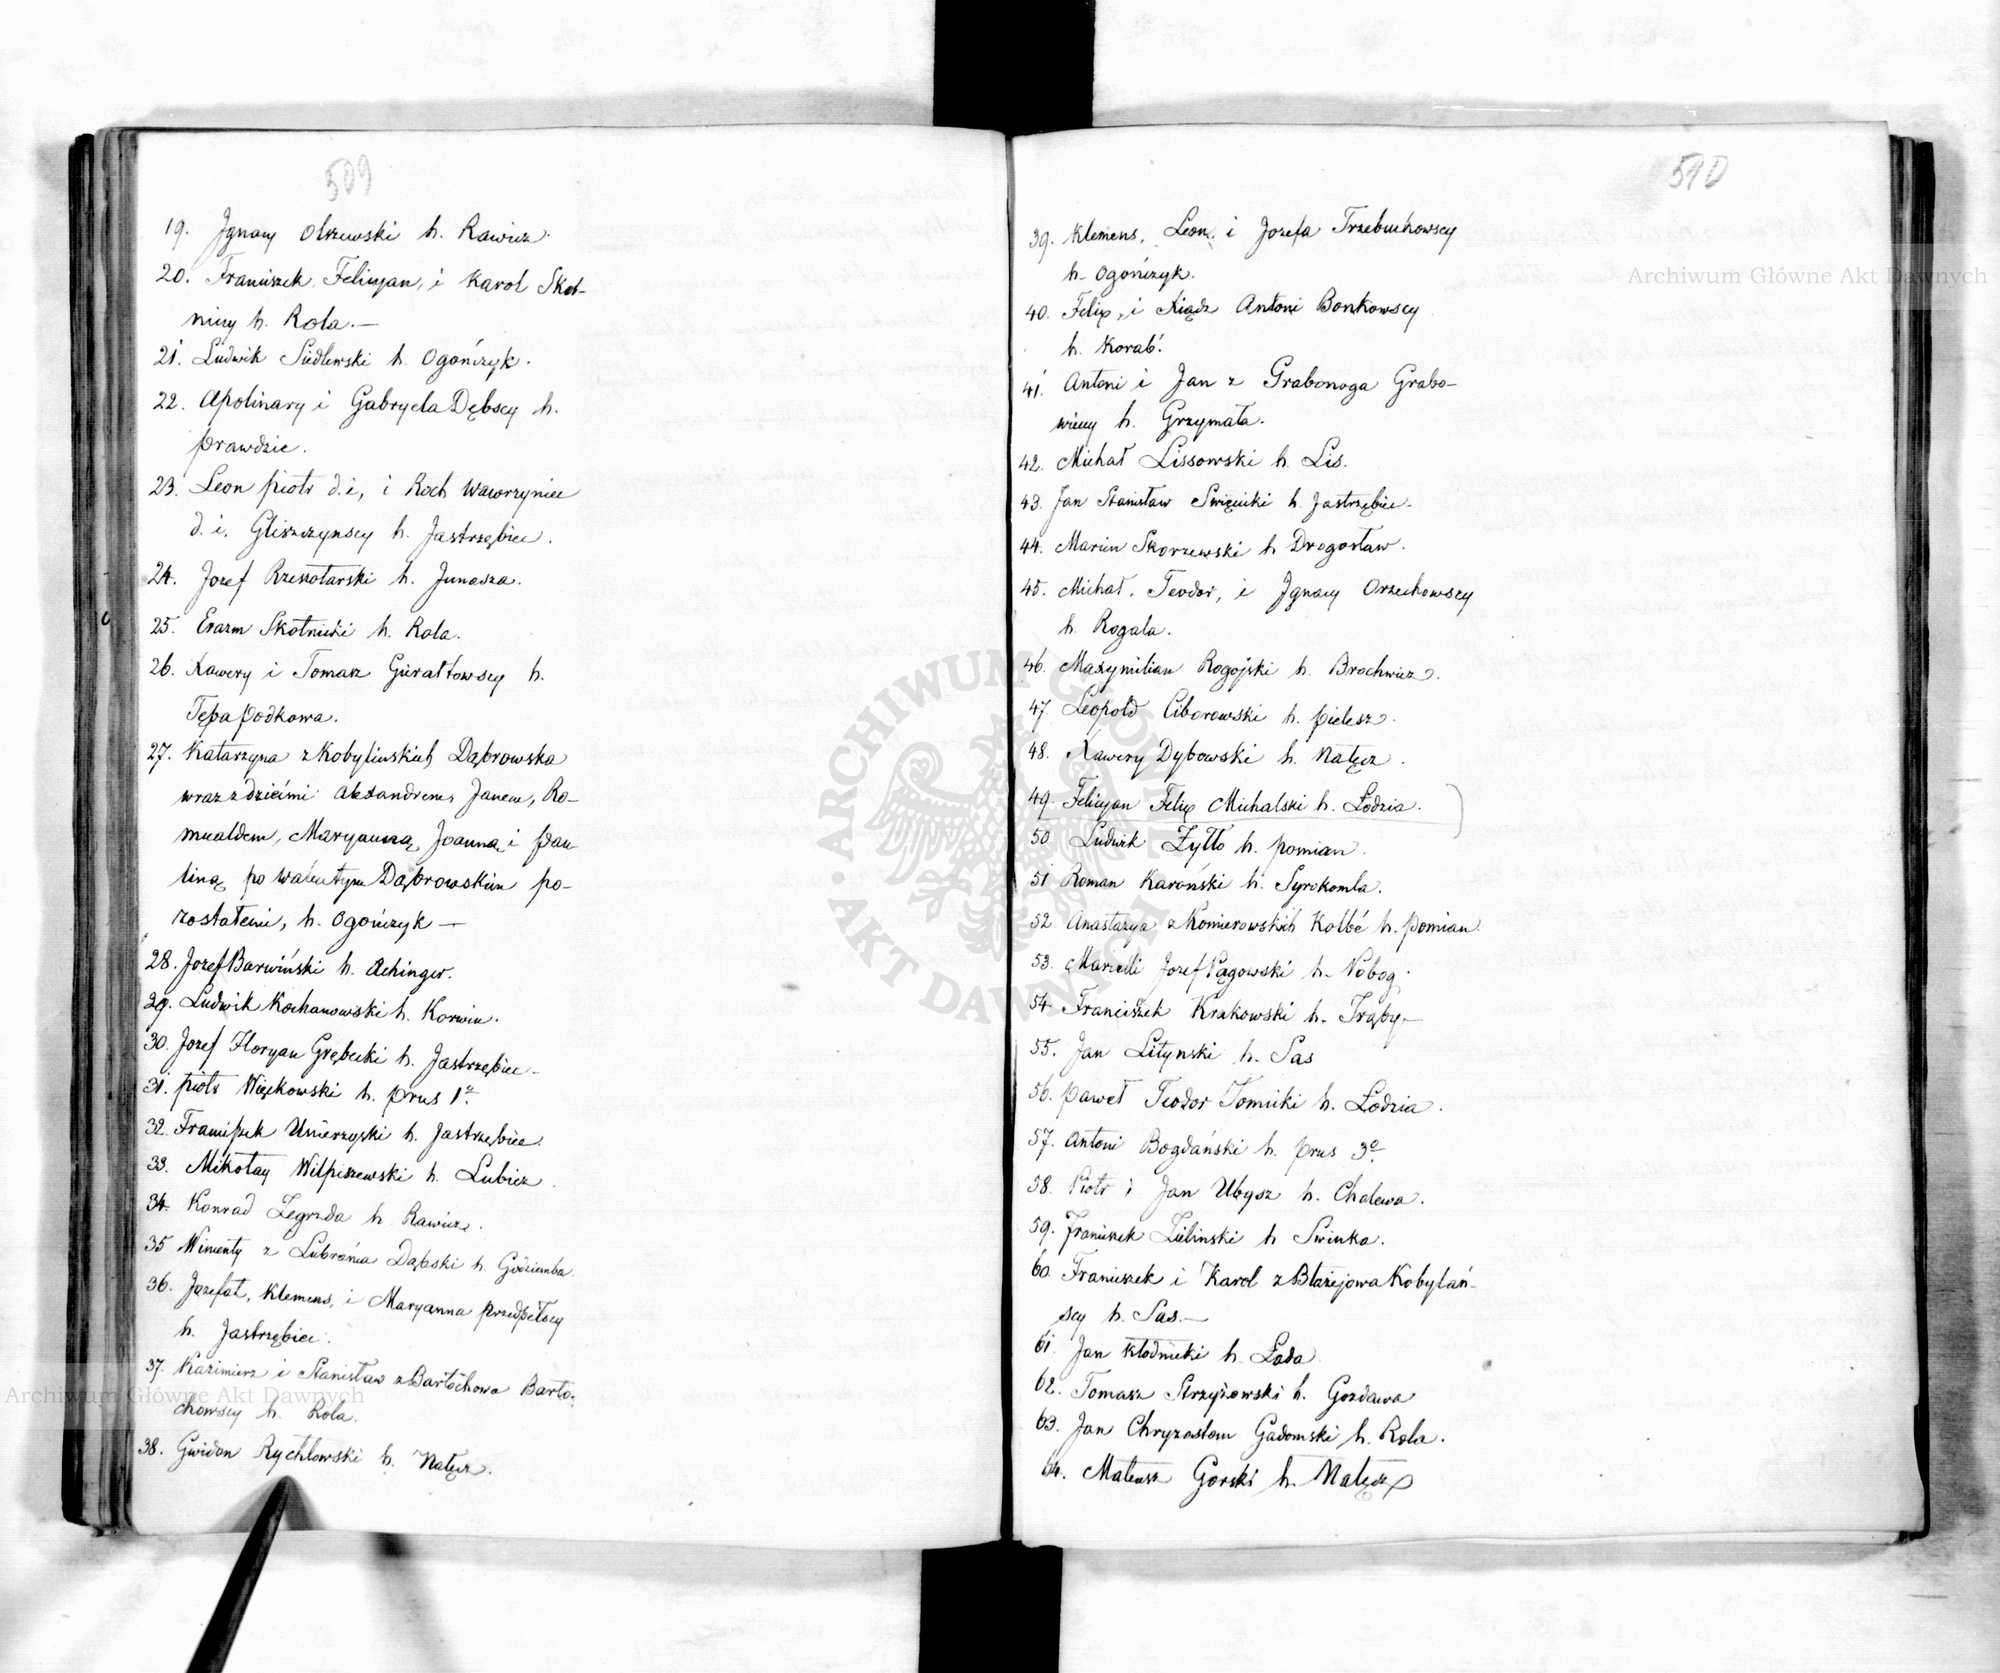 509
19. Jgnacy Olszewski h. Rawicz.
20. Franciszek Felicyan, i Karol Skot-
niccy h. Rola.—
21. Ludwik Siedlewski h. Ogończyk.
22. Apolinary i Gabryela Dębscy h.
Prawdzic.
23. Leon Piotr d. i., i Roch Wawrzyniec
d. i. Gliszczynscy h. Jastrzębiec.
24. Jozef Rzeszotarski h. Junosza.
25. Erazm Skotnicki h. Rola.
26. Xawery i Tomasz Gierałtowscy h.
Tępa Podkowa.
27. Katarzyna z Kobylinskich Dąbrowska
wraz z dziećmi Alexandrem, Janem, Ro-
mualdem, Maryanną, Joanną i Pau
liną po Walentym Dąbrowskim po-
zostałemi, h. Ogończyk —
28. Jozef Barwiński h. Achinger.
29. Ludwik Kochanowski h. Korwin.
30. Jozef Floryan Grębecki h. Jastrzębiec.
31. Piotr Więckowski h. Prus 1o.
32. Franciszek Umierzyski h. Jastrzębiec.
33. Mikołay Wilpiszewski h. Lubicz.
34. Konrad Zegrzda h. Rawicz.
35 Wincenty z Lubrańca Dąbski h. Godziemba
36. Jozefat, Klemens, i Maryanna Przedpełscy
h. Jastrzębiec.
37. Kazimierz i Stanisław z Bartochowa Barto-
chowscy h. Rola.
38. Gwidon Rychłowski h. Nałęcz.
510
39. Klemens, Leon i Jozefa Trzebuchowscy
h. Ogończyk.
40. Felix, i Xiądz Antoni Bonkowscy
h. Korab.
41. Antoni i Jan z Grabonoga Grabo-
wieccy h. Grzymała.
42. Michał Lissowski h. Lis.
43. Jan Stanisław Swięcicki h. Jastrzębiec.
44. Marcin Skorzewski h Drogosław.
45. Michał, Teodor, i Jgnacy Orzechowscy
h. Rogala.
46. Maxymilian Rogojski h. Brochwicz.
47. Leopold Ciborowski h. Pielesz.
48. Xawery Dybowski h. Nałęcz.
49. Felicyan Felix Michalski h. Łodzia.
50. Ludwik Zyłło h. Pomian.
51 Roman Karoński h. Syrokomla.
52 Anastazya z Komierowskich Kolbé h. Pomian.
53. Marcelli Jozef Pągowski h. Pobog.
54. Franciszek Krakowski h. Trąby.—
55. Jan Lityński h. Sas
56. Paweł Teodor Tomicki h. Łodzia.
57. Antoni Bogdański h. Prus 3o.
58. Piotr i Jan Ubysz h. Cholewa.
59. Franciszek Zielinski h Swinka.
60. Franciszek i Karol z Błażejowa Kobylań-
scy h. Sas.—
61. Jan Kłodnicki h. Łada
62. Tomasz Strzyżowski h. Gozdawa
63. Jan Chryzostom Gadomski h. Rola.
64. Mateusz Gorski h. Nałęcz
Archiwum Główne Akt Dawnych
Archiwum Główne Akt Dawnych
ARCHIWUM GŁÓWNE AKT DAWNYCH